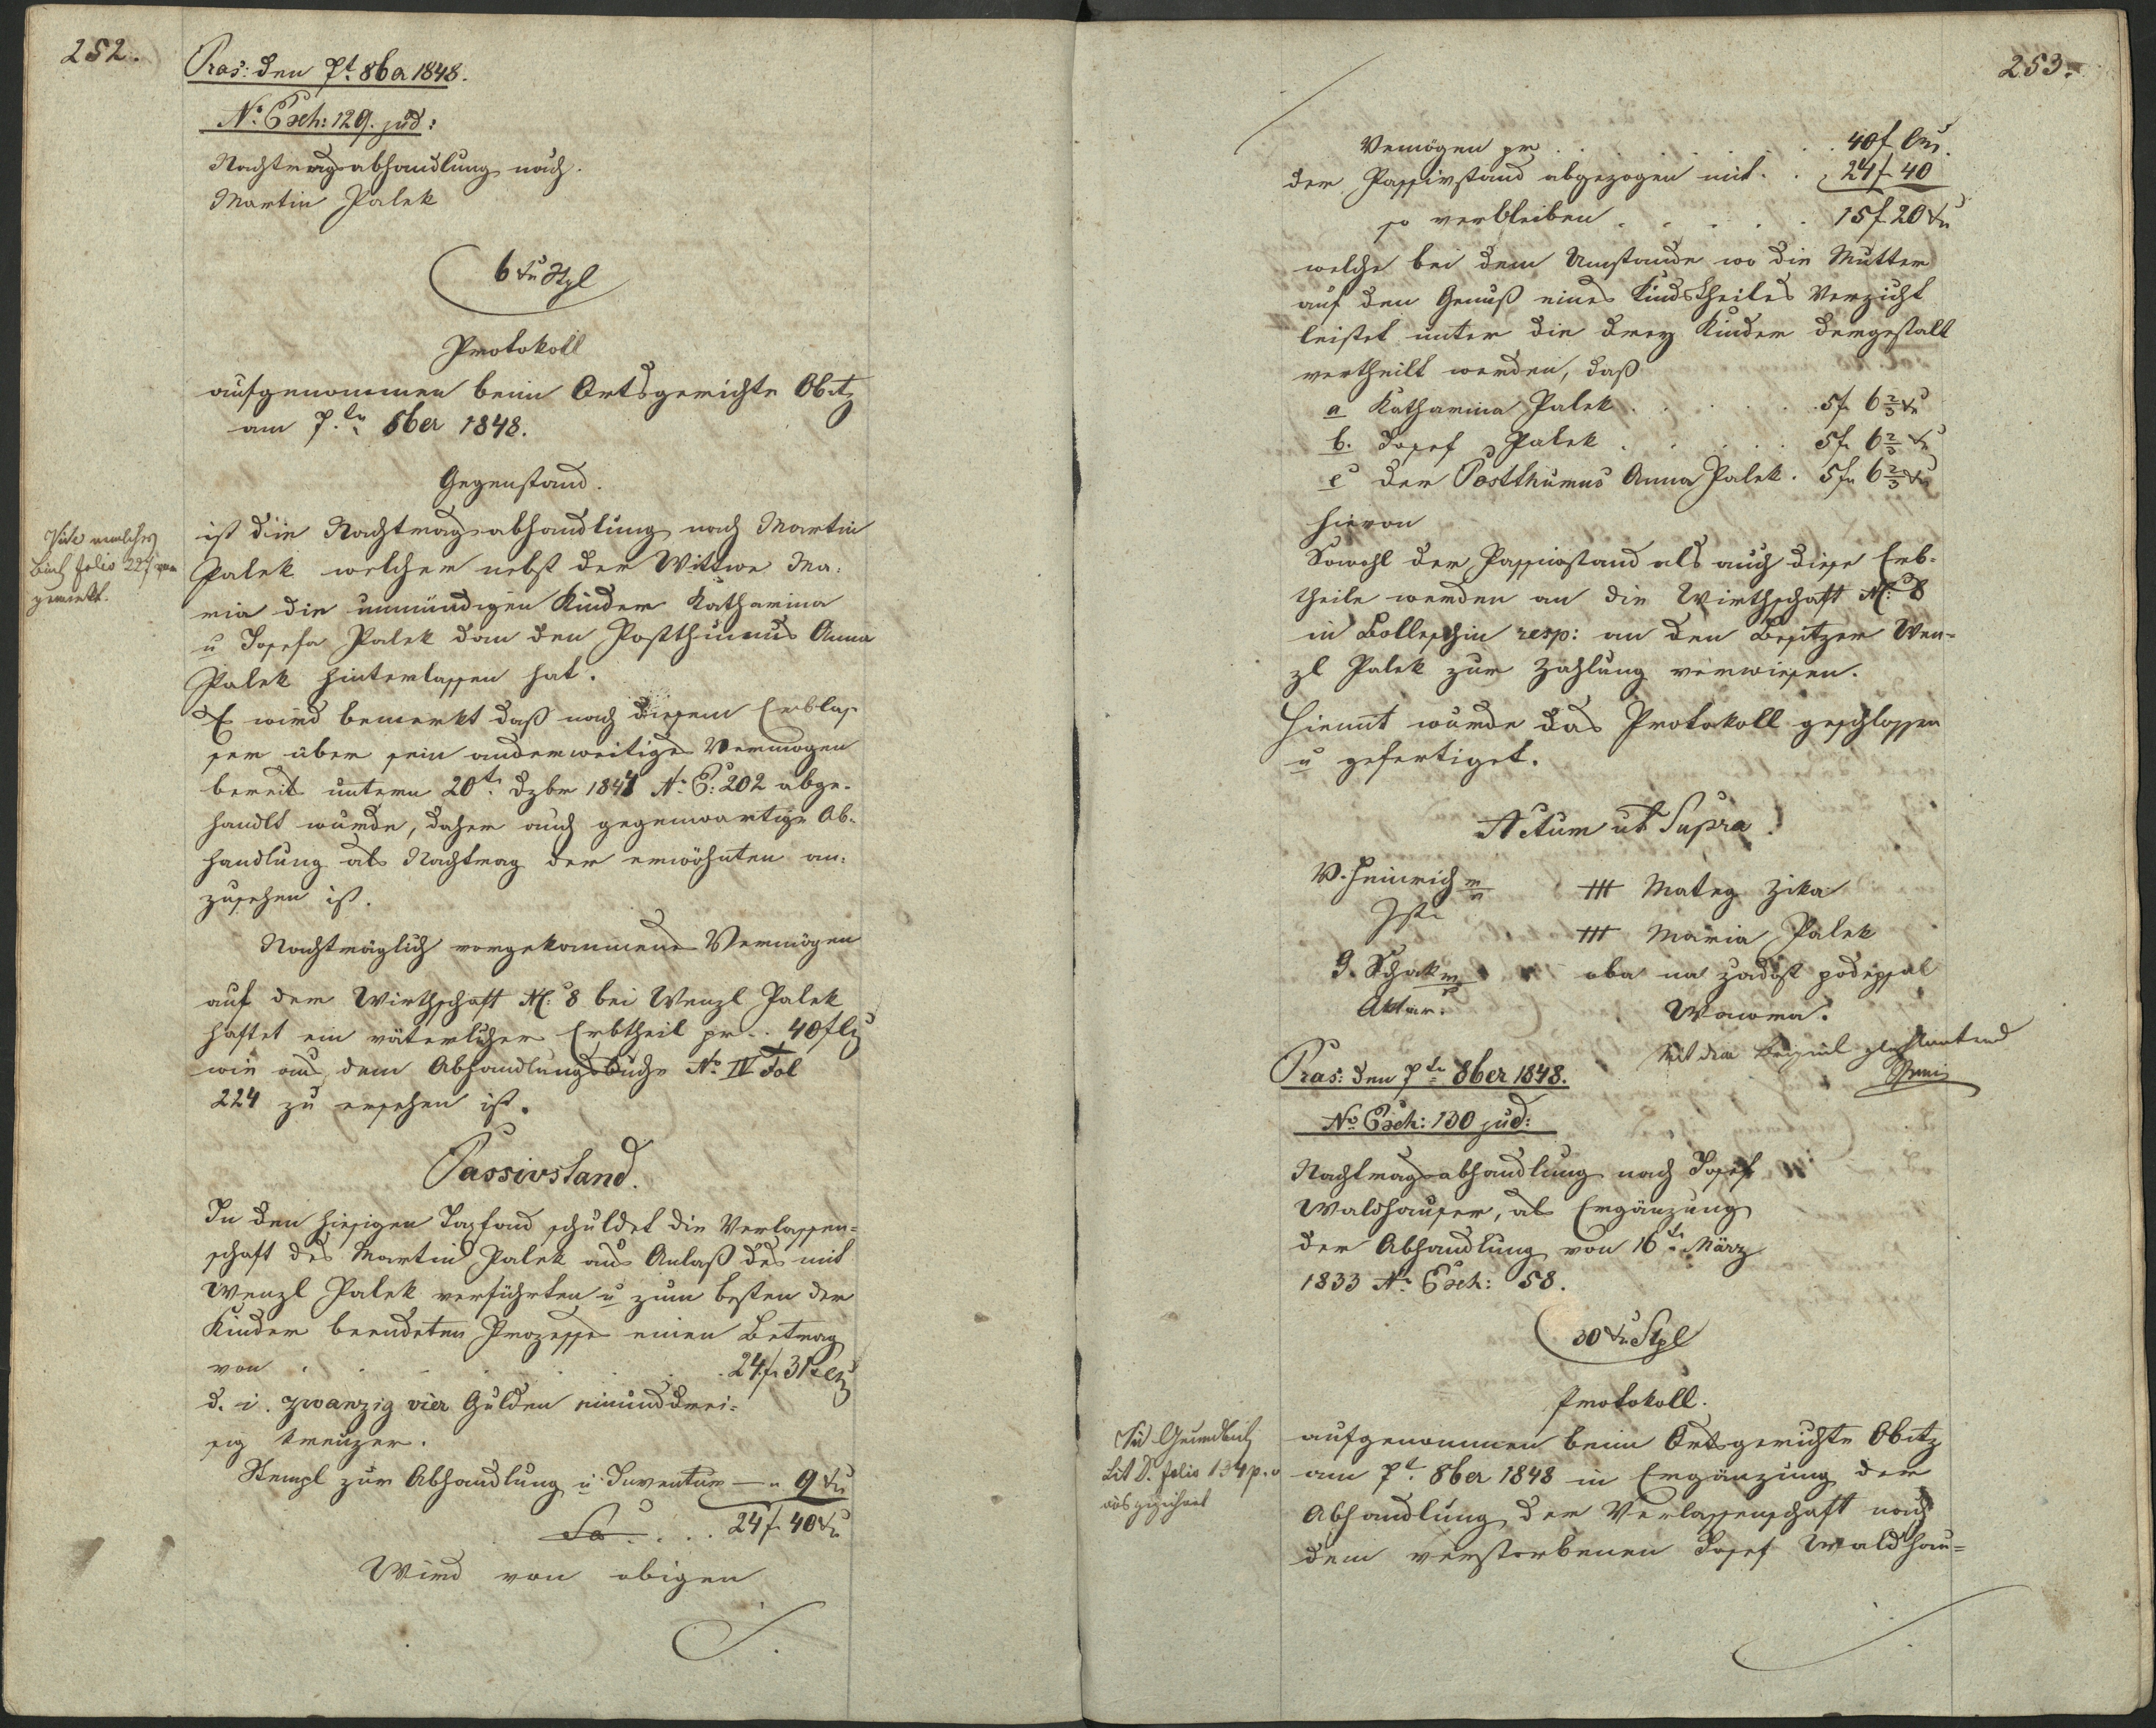 252.
Pras: den 7t 8ber 1848.
No. Exh: 129. jud:
Nachtragsabhandlung nach
Martin Palek
6 xr Stpl
Protokoll
aufgenommen beim Ortsgerichte Obitz
am 7ten 8ber 1848.
Gegenstand.
ist die Nachtragsabhandlung nach Martin
Palek welcher nebst der Wittwe Ma-
ria die unmündigen Kinder Katharina
u Josefa Palek dan den Posthumus Anna
Palek hinterlassen hat.
Es wird bemerkt daß nach diesem Erblas
ser über sein anderweitiges Vermögen
bereits unterm 20t. Dzbr 1844 N. E: 202 abge-
handlt wurde, daher auch gegenwartige Ab-
handlung als Nachtrag der erwöhnten an-
zusehen ist.
Buch folio 227
gemerkt.
Nachträglich vorgekommenes Vermögen
auf der Wirthschaft N: 8 bei Wenzl Palek
haftet ein väterlicher Erbtheil pr. 40 f
wie aus dem Abhandlungsbuche No. IV Fol
224 zu ersehen ist.
Passivstand.
In den hiesigen Taxfond schuldet die Verlassen-
schaft des Martin Palek aus Anlaß des mit
Wenzl Palek verführten u zum besten der
Kinder beendeten Prozesses einen Betrag
von . . . . . 24 f 31
d. i. zwanzig vier Gulden einunddrei-
sig kreuzer.
Stempl zur Abhandlung u Inventur — " 9 xr
Sa . . . 24 f 40 xr
Wird von obigen
253.
Vermögen pr . . . . . 40 f
der Passivstand abgezogen mit . . 24 f 40
so verbleiben . . . . . 15 f 20 xr
welche bei dem Umstande wo die Mutter
auf den Genuß eines Kindstheiles Verzicht
leistet unter die drey Kinder dergestalt
vertheilt werden, daß
a Katharina Palek . . . . 5 f 6 2/3 xr
b. Josef Palek . . . . 5 f 6 2/3 xr
c der Postthumus Anna Palek . 5 f 6 2/3 xr
hievon
Sowohl der Passivstand als auch diese Erb-
theile werden an die Wirthschaft N: 8
in Bolleschin resp: an den Besitzer Wen-
zl Palek zur Zahlung verwiesen.
Hiemit wurde das Protokoll geschlossen
u gefertiget.
Actum ut Supra.
W. Heinrich
+++ Mateg Zika
+++ Maria Palek
G. Schak
Aktuar.
oba na zadost podepsal
Wawra.
Mit dem Original gleichlautend
Pras: den 7ten 8ber 1848.
No. Exh: 130 jud:
Nachtragsabhandlung nach Josef
Waldhauser, als Ergänzung
der Abhandlung von 16ten März
1833 N. Exh: 58.
30 xr Stpl
Protokoll.
aufgenommen beim Ortsgerichte Obitz
am 7t. 8ber 1848 in Ergänzung der
Abhandlung der Verlassenschaft nach
dem verstorbenen Josef Waldhau-
Grundbuch
Lit D. folio 134 p. v
ausgezeichnet